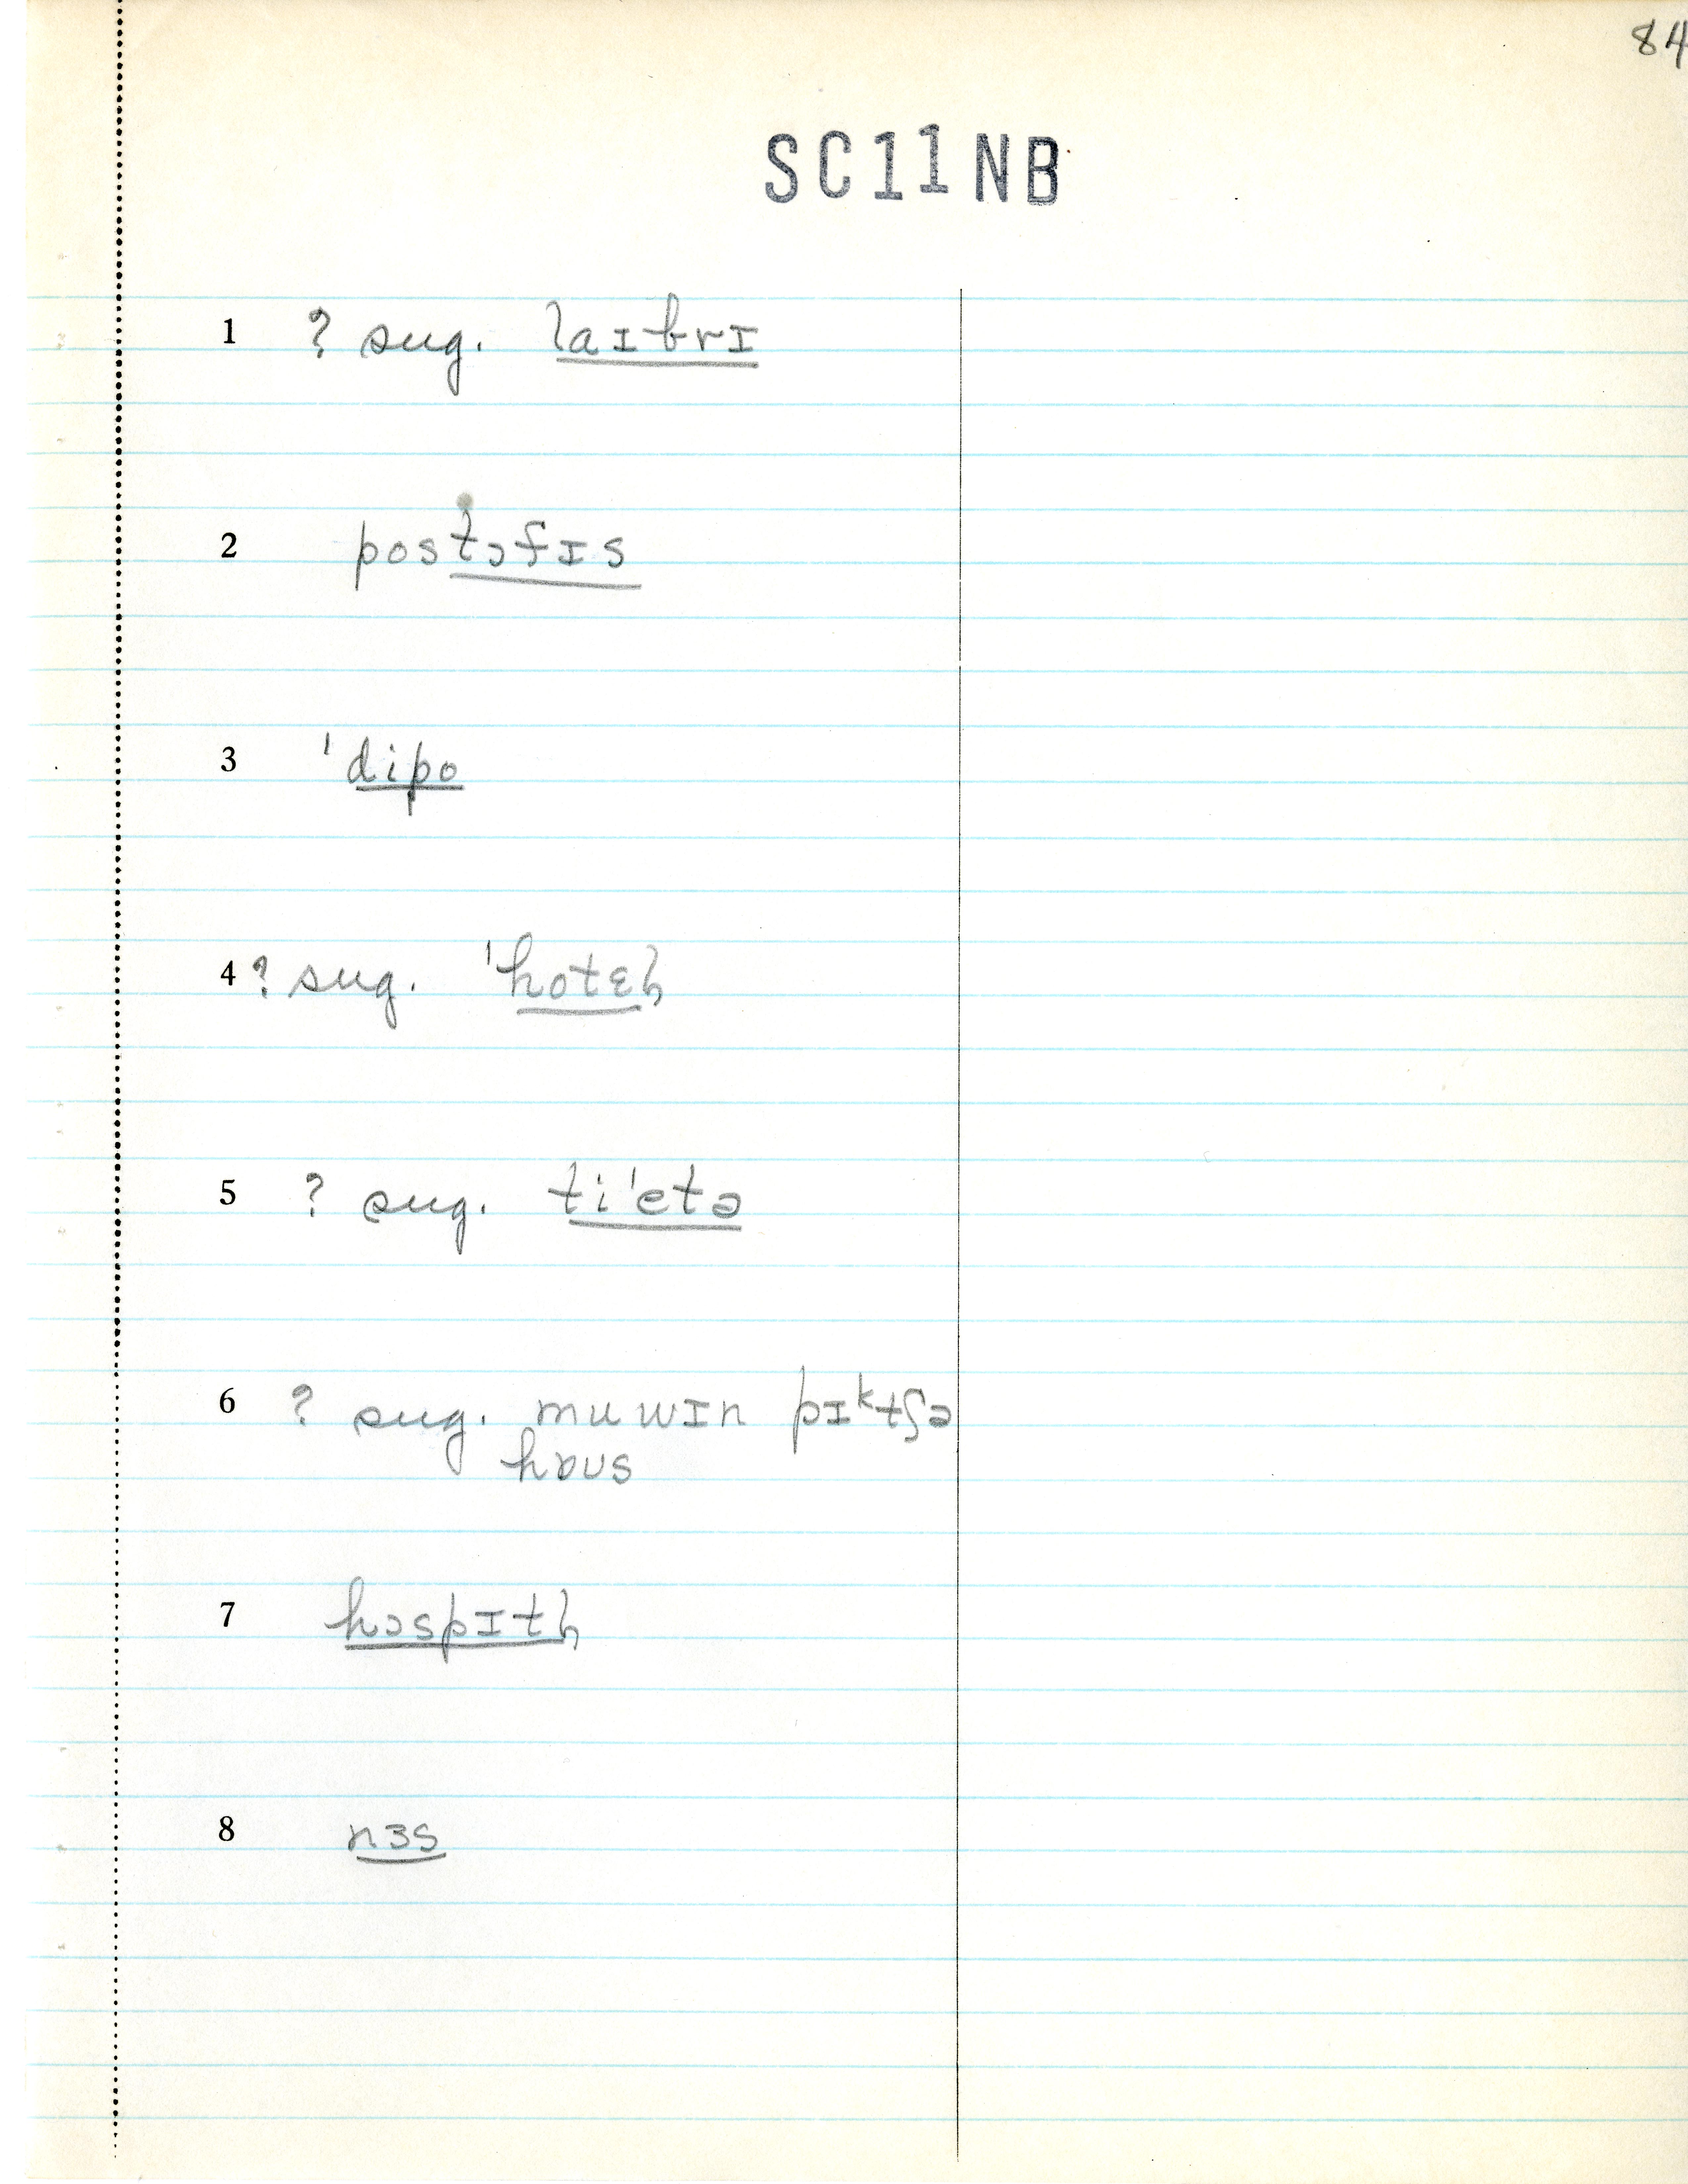 84
SC11NB
1 ? sug. laɪbrɪ
2 postɔfɪs
3 ˈdipo
4 ? sug. ˈhotɛɫ
5 ? sug. tiˈetə
6 ? sug. muwɪn pɪᵏtʃə
hɒʊs
7 hɔspɪtɫ
8 nɜs